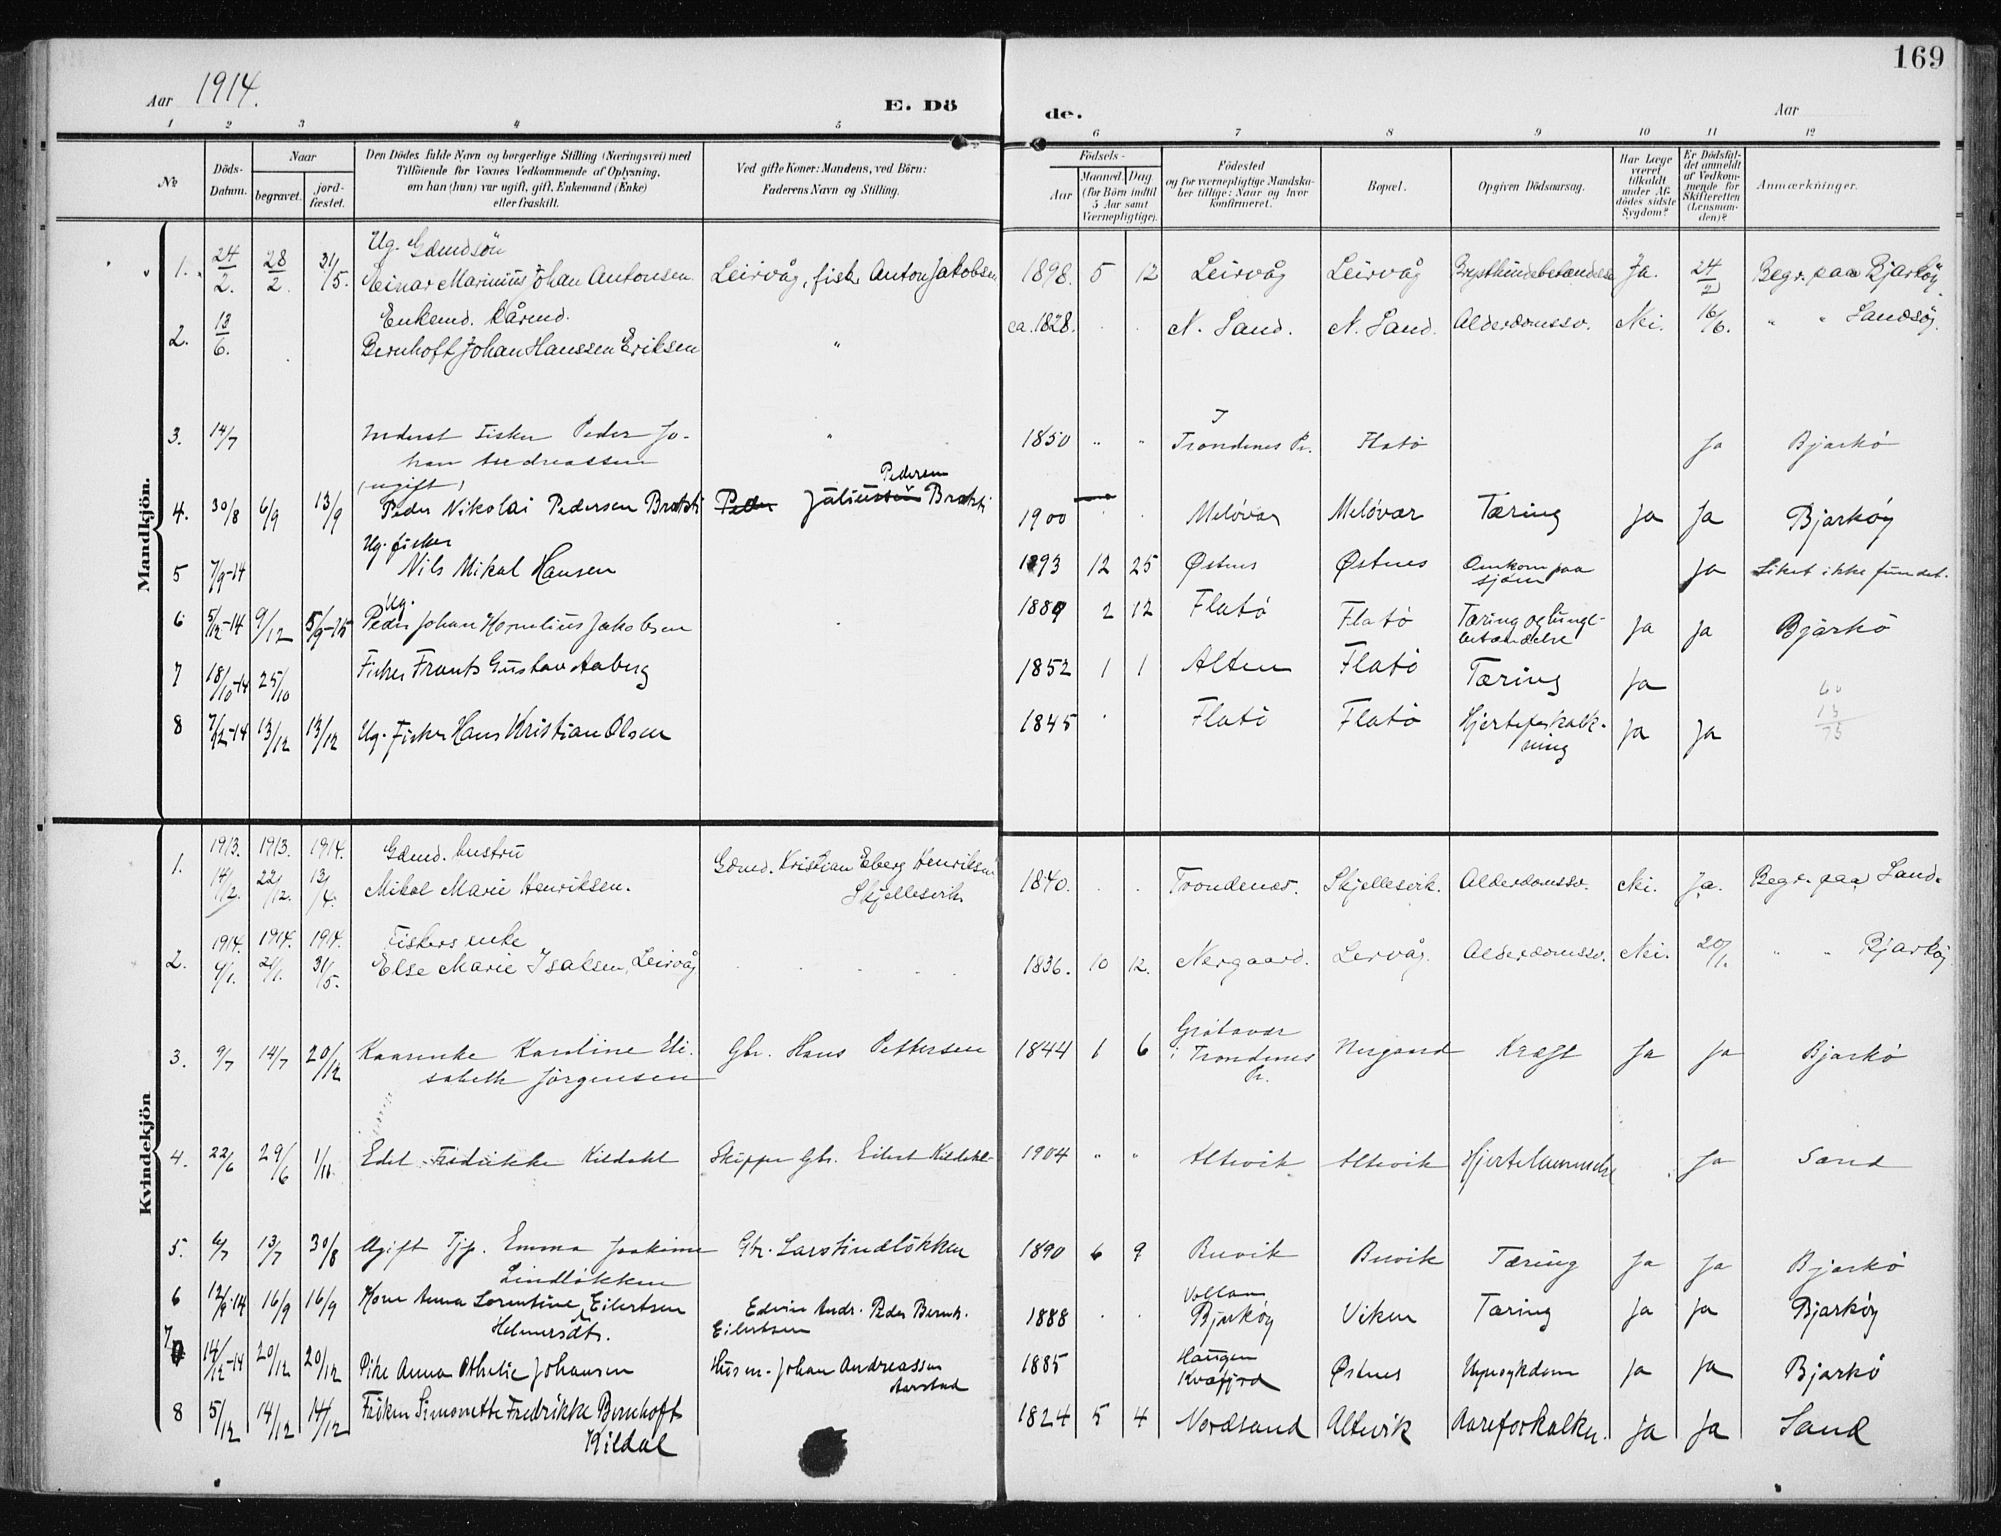 169
Aar 1914. E. Dö de. Aar
1 2 3 4 5 6 7 8 9 10 11 12
No Döds-Datum. Naar begravet. jordfæstet. Den Dödes fulde Navn og borgerlige Stilling (Næringsvei) med Tilföiende for Voxnes Vedkommende af Oplysning, om han (hun) var ugift, gift, Enkemand (Enke) eller fraskilt. Ved gifte Koner: Mandens, ved Börn: Faderens Navn og Stilling. Födsels- Aar Maaned. Dag. (for Börn indtil 5 Aar samt Værnepligtige). Födested og for værnepligtige Mandskaber tillige: Naar og hvor konfirmeret. Bopæl. Opgiven Dödsaarsag. Har Læge været tilkaldt under Afdödes sidste Sygdom? Er Dödsfaldet anmeldt af Vedkommende for Skifteretten (Lensmanden)? Anmærkninger.
Mandkjön.
1. 24/2. 28/2 31/5. Ug. Gdmdsön Einar Marinius Johan Antonsen Leirvåg, fisk. Anton Jakobsen 1898. 5 12 Leirvåg Leirvåg Brysthindebetændelse Ja. 24/2 Begr. paa Bjarköy.
2. 13/6. Enkemd. kårmd. Bernhoft Johan Hanssen Eriksen " ca. 1828. N. Sand. N. Sand. Alderdomssv. Nei. 16/6. " " Sandsöy.
3. 14/7 Inderst Fisker Peder Johan Andreassen (ugift) " 1850 " " I Trondenes Pr. Flatö Ja Bjarkö
4. 30/8 6/9 13/9 Peder Nikolai Pedersen Brokti Peder Julius Pedersen Brokti 1900 Melövar Melövær Tæring Ja Ja Bjarköy
5 7/9-14 Ug. fisker Nils Mikal Hansen 1893 12 25 Østnes Østnes Omkom paa sjøen Ja Liket ikke fundet.
6 5/12-14 9/12 5/9-15 Ug. Peder Johan Kornelius Jakobsen 1889 2 12 Flatö Flatö Tæring og lungebetændelse Ja Ja Bjarkö
7 18/10-14 25/10 Fisker Frants Gustav Aaberg 1852 1 1 Alten Flatö Tæring Ja
8 7/12-14 13/12 13/12 Ug. Fisker Hans Kristian Olsen 1845 Flatö Flatö Hjerteforkalkning Ja Ja
60
15
75
Kvindekjön
1. 1913. 14/12. 1913. 22/12. 1914. 13/4. Gdmd. hustru Mikal Marie Henriksen. Gdmd. Kristian Eberg Henriksen Skjellesvik 1840. Trondenæs. Skjellesvik. Alderdomssv. Nei. Ja. Begr. paa Sand.
2. 1914. 9/1. 1914. 21/1. 1914. 31/5. Fiskers enke Else Marie Isaksen, Leirvåg 1836. 10 12. Nergaard. Lervåg. Alderdomssv. Nei. 20/1. " " Bjarköy.
3. 9/7 14/7 20/12 Kaarenke Karoline Elisabeth Jörgensen Gbr. Hans Pettersen 1844 1 6 Grötavær i Trondenes Pr. Nergaard Kræft Ja Ja Bjarkö
4. 22/6 29/6 1/11 Edel Fredrikke Kildahl Skipper Gbr. Eilert Kildahl 1904 " " Altevik Altevik Hjertelammelse Ja Sand
5. 6/7 13/7 30/8 Ugift Tjp. Emma Joakime Lindlökken Gbr. Lars Lindlökken 1890 6 9 Buvik Buvik Tæring Ja Ja Bjarkö
6 12/9-14 16/9 16/9 Kone Anna Lorentine Eilertsen Helmersdt. Edvin Andr. Peder Bernh. Eilertsen 1888 Vollan Bjarköy Viken Tæring Ja Ja Bjarköy
7 14/12-14 20/12 20/12 Pike Anna Othelie Johansen Husm. Johan Andreassen Aarstad 1885 Haugen Kvæfjord Østnes Nyresykdom Ja Ja Bjarkö
8 5/12 14/12 14/12 Fröken Simonette Fredrikke Bernhoft Kildal 1824 5 4 Nordsand Altevik Aareforkalkn. Ja Ja Sand